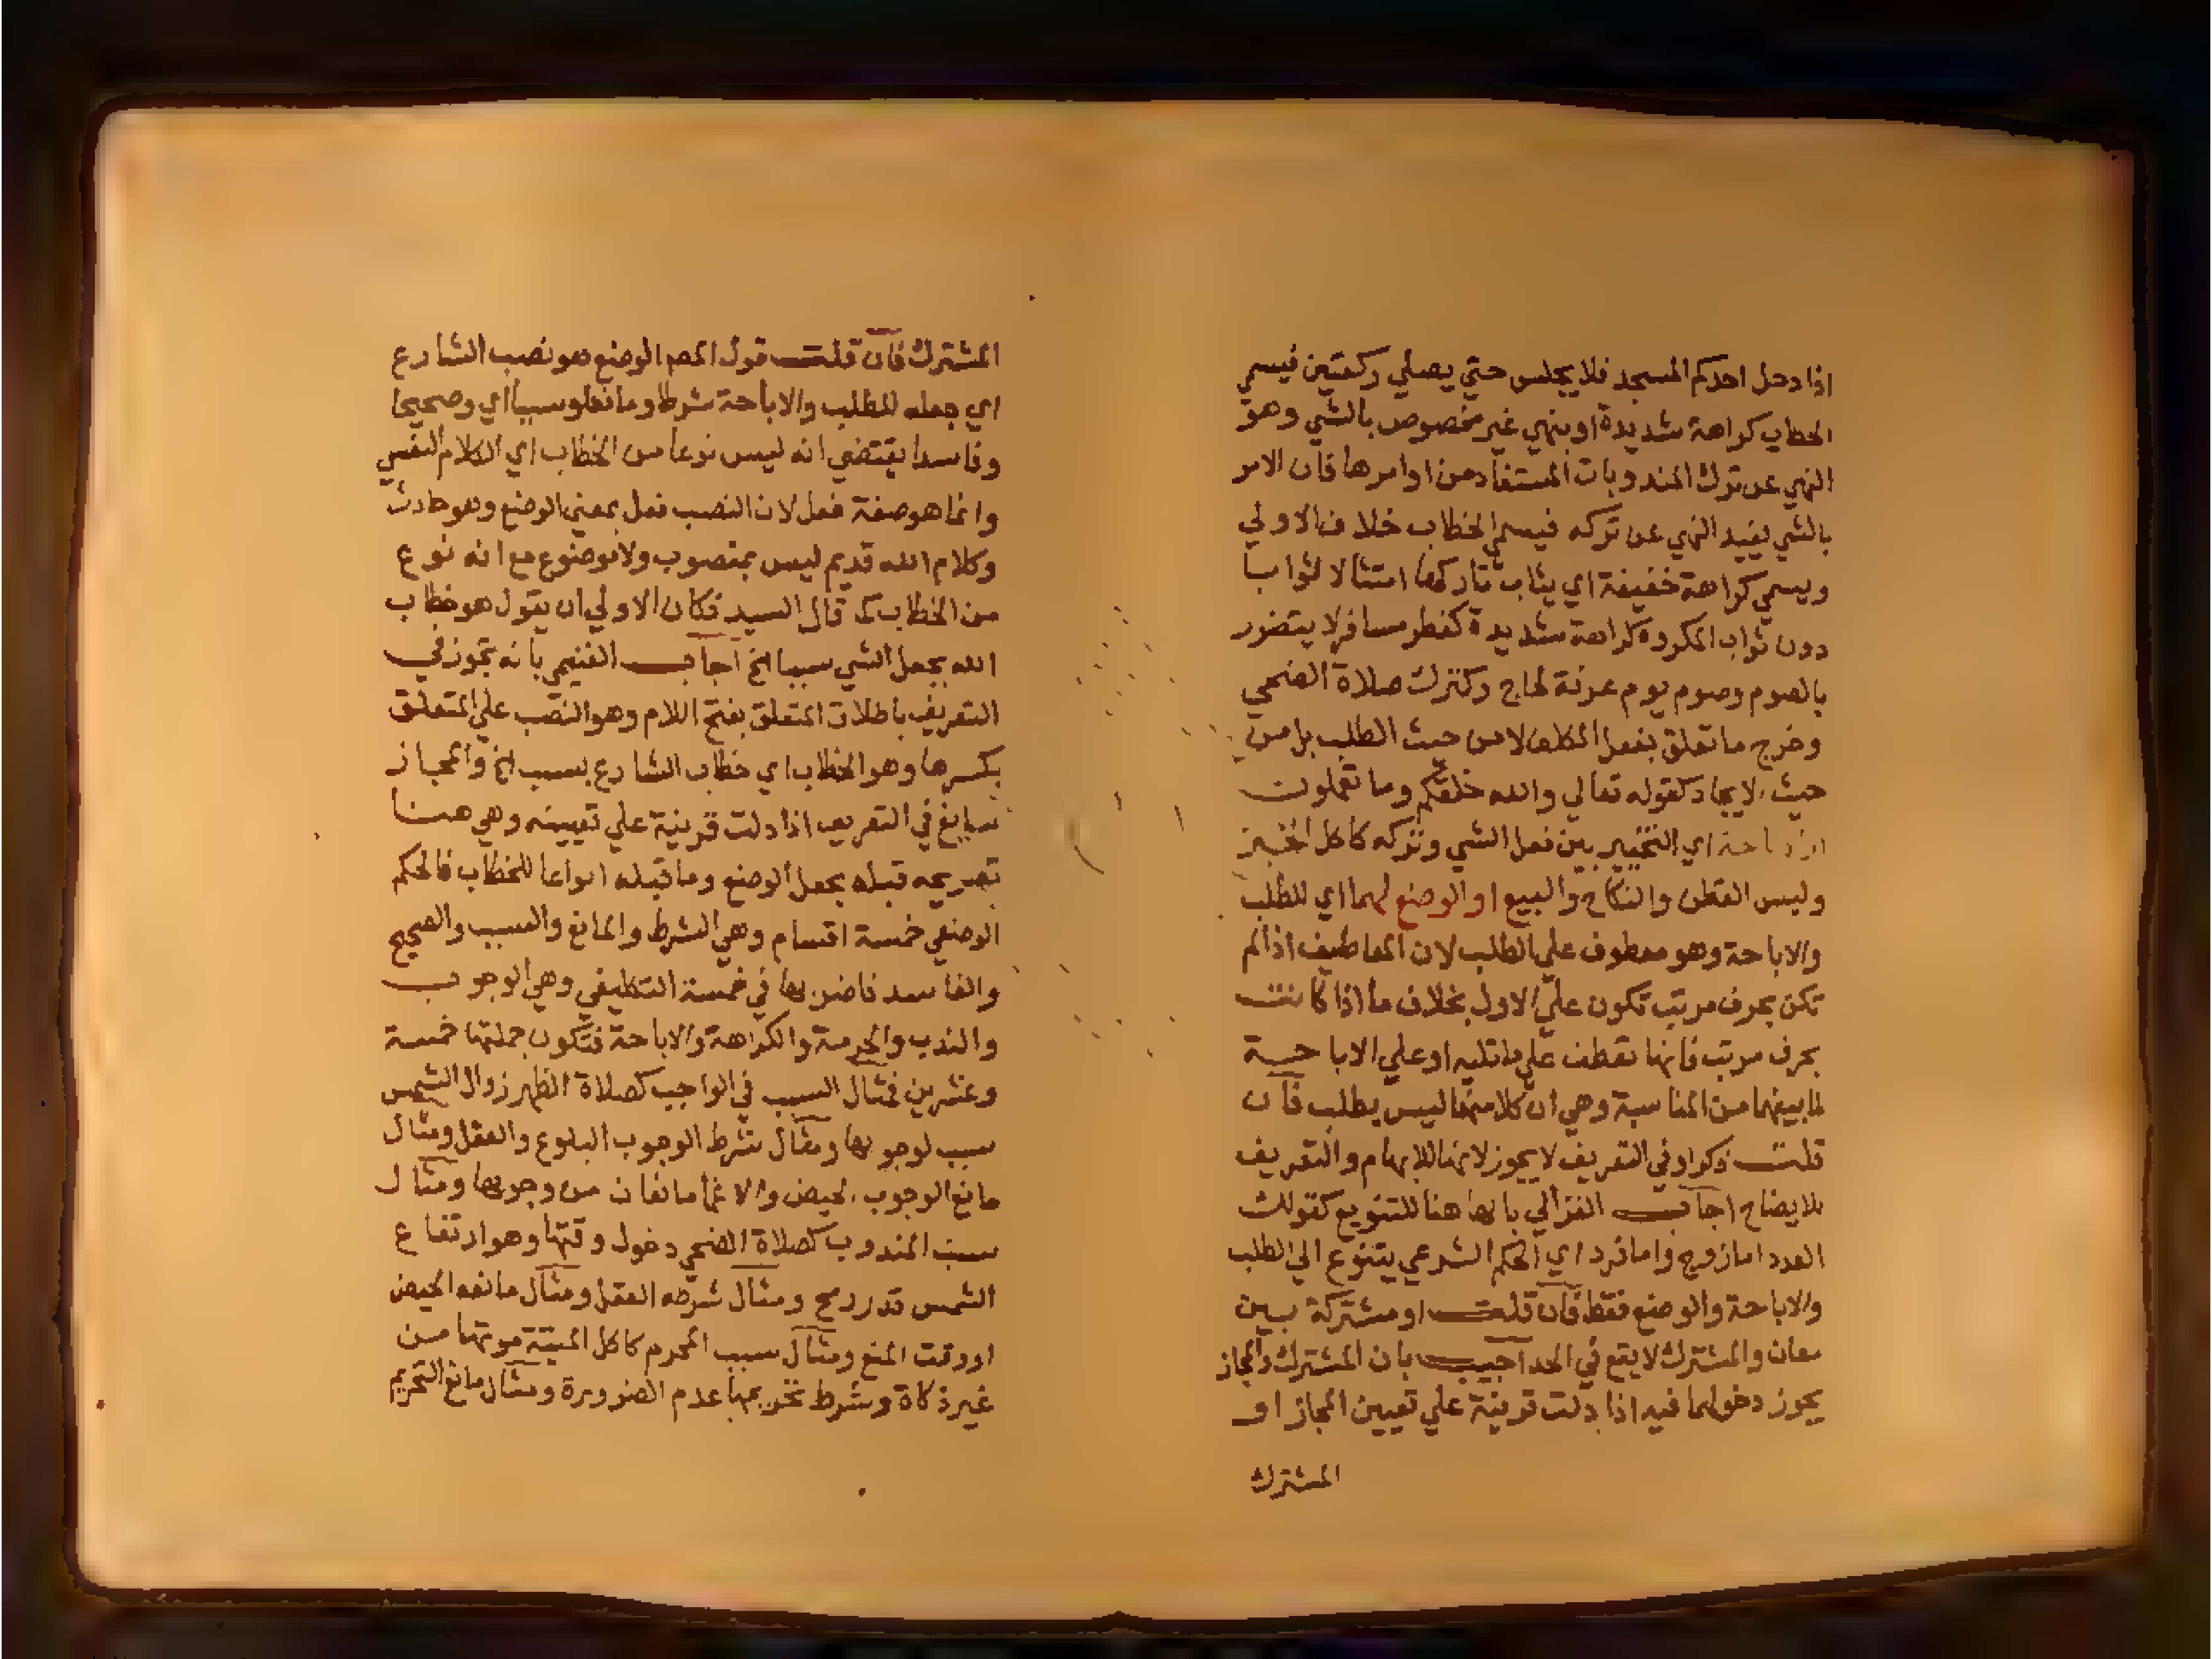 اذا دخل احدكم المسجد فلا يجلس حتي يصلي ركعتين فيسمي
الخطاب كراهة شديدة او بنهي غير مخصوص بالشي وهو
النهي عن ترك المندوبات المستفاد من اوامرها فان الامر
بالشي يفيد النهي عن تركه فيسمي الخطاب خلاف الاولي
ويسمي كراهة خفيفة اي يثاب تاركها امتثالا ثوابا
دون ثواب المكروه كراهة شديدة كفطر مسافر لا يتضرر
بالصوم وصوم يوم عرفة لحاج وكترك صلاة الضحي
وخرج ما تعلق بفعل المكلف لا من حيث الطلب بل من
حيث الايجاد كقوله تعالي والله خلقكم وما تعملون
اي التخيير بين فعل الشي وتركه كاكل الخبز
وليس القطن والنكاح والبيع او الوضع لهما اي للطلب
والاباحة وهو معطوف علي الطلب لان المعاطيف اذا لم
تكن بحرف مرتب تكون علي الاول بخلاف ما اذا كانت
بحرف مرتب فانها تعطف علي ما تليه او علي الاباحة
لما بينهما من المناسبة وهي ان كلا منهما ليس بطلب فان
قلت ذكر او في التعريف لا يجوز لانها للابهام والتعريف
للايضاح اجاب الغزالي بانها هنا للتنويع كقولك
العدد اما زوج واما فرد اي الحكم الشرعي يتنوع الي الطلب
والاباحة والوضع فقط فان قلت او مشتركة بين
معان والمشترك لا يقع في الحد اجيب بان المشترك والمجاز
يجوز دخولهما فيه اذا دلت قرينة علي تعيين المجاز او
المشترك
المشترك فان قلت قول المصم الوضع هو نصب الشارع
اي جعله للطلب والاباحة شرطا ومانعا وسببا اي وصحيحا
وفاسدا يقتضي انه ليس نوعا من الخطاب اي الكلام النفسي
وانما هو صفة فعل لان النصب فعل بمعني الوضع وهو حادث
وكلام الله قديم ليس بمنصوب ولا موضوع مع انه نوع
من الخطاب كما قال السيد فكان الاولي ان يقول هو خطاب
الله بجعل الشي سببا الخ اجاب الغنيمي بانه تجوز في
التعريف باطلاق المتعلق بفتح اللام وهو النصب علي المتعلق
بكسرها وهو الخطاب اي خطاب الشارع بسبب الخ والمجاز
سايغ في التعريف اذا دلت قرينة علي تعيينه وهي هنا
تصريحه قبله بجعل الوضع وما قبله انواعا للخطاب فالحكم
الوضعي خمسة اقسام وهي الشرط والمانع والسبب والصحيح
والفاسد فاضربها في خمسة التكليفي وهي الوجوب
والندب والحرمة والكراهة والاباحة فتكون جملتها خمسة
وعشرين فمثال السبب في الواجب كصلاة الظهر زوال الشمس
سبب لوجوبها ومثال شرط الوجوب البلوغ والعقل ومثال
مانع الوجوب الحيض والاغما مانعان من وجوبها ومثال
سبب المندوب كصلاة الضحي دخول وقتها وهو ارتفاع
الشمس قدر رمح ومثال شرطه العقل ومثال مانعه الحيض
او وقت المنع ومثال سبب المحرم كاكل الميتة موتها من
غير ذكاة وشرط تحريمها عدم الضرورة ومثال مانع التحريم